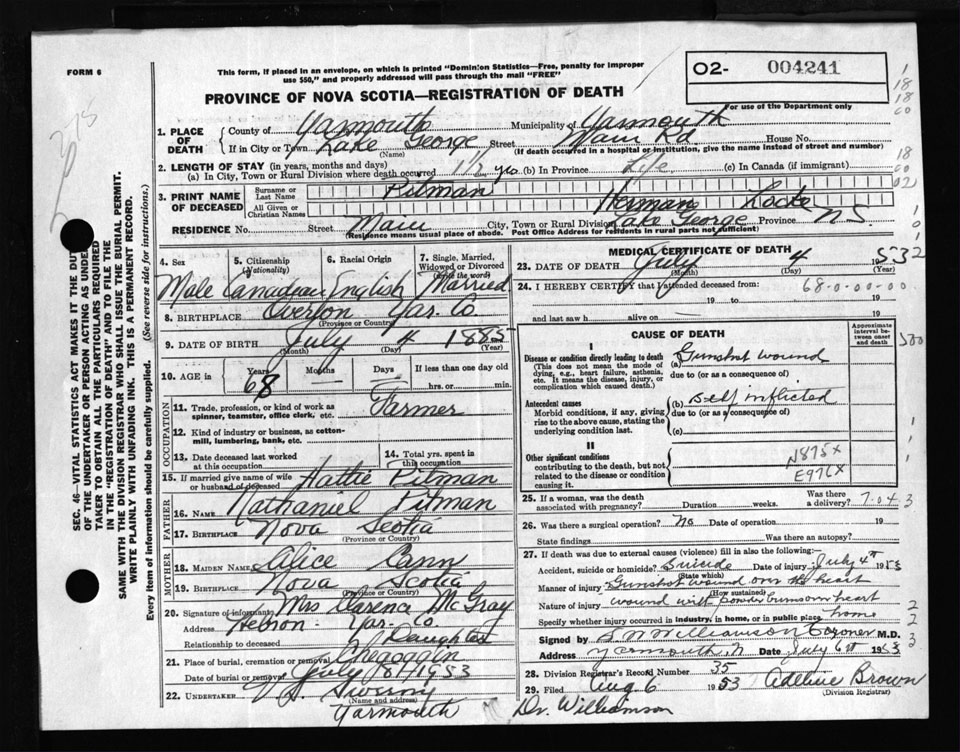 FORM 6
This form, if placed in an envelope, on which is printed "Dominion Statistics—Free, penalty for improper
use $50," and properly addressed will pass through the mail "FREE"
O2- 004241
For use of the Department only
PROVINCE OF NOVA SCOTIA—REGISTRATION OF DEATH
1. PLACE OF DEATH
County of Yarmouth Municipality of Yarmouth
If in City or Town Lake George (Name) Street Main Rd. House No.
(If death occurred in a hospital or institution, give the name instead of street and number)
2. LENGTH OF STAY (in years, months and days)
(a) In City, Town or Rural Division where death occurred 1 1/2 yrs. (b) In Province Life (c) In Canada (if immigrant)
3. PRINT NAME OF DECEASED
Surname or Last Name Pitman
All Given or Christian Names Herman Locke
RESIDENCE No. Street Main City, Town or Rural Division Lake George Province N.S.
(Residence means usual place of abode. Post Office Address for residents in rural parts not sufficient)
4. Sex Male
5. Citizenship (Nationality) Canadian
6. Racial Origin English
7. Single, Married, Widowed or Divorced (write the word) Married
8. BIRTHPLACE Overton Yar. Co.
(Province or Country)
9. DATE OF BIRTH July 4 1885
(Month) (Day) (Year)
10. AGE in Years 68 Months — Days — If less than one day old
hrs. or min.
OCCUPATION
11. Trade, profession, or kind of work as spinner, teamster, office clerk, etc. Farmer
12. Kind of industry or business, as cotton-mill, lumbering, bank, etc.
13. Date deceased last worked at this occupation
14. Total yrs. spent in this occupation
15. If married give name of wife or husband of deceased Hattie Pitman
FATHER
16. NAME Nathaniel Pitman
17. BIRTHPLACE Nova Scotia
(Province or Country)
MOTHER
18. MAIDEN NAME Alice Cann
19. BIRTHPLACE Nova Scotia
(Province or Country)
20. Signature of informant Mrs Clarence McGray
Address Hebron - Yar. Co.
Relationship to deceased Daughter
21. Place of burial, cremation or removal Chegoggin
Date of burial or removal July 1953
22. UNDERTAKER Sweeny
(Name and address)
Yarmouth
MEDICAL CERTIFICATE OF DEATH
23. DATE OF DEATH July 4 1953
(Month) (Day) (Year)
24. I HEREBY CERTIFY that I attended deceased from: 68-0-00-00
19 to 19
and last saw h alive on — 19
CAUSE OF DEATH
Approximate interval between onset and death
I
Disease or condition directly leading to death (a) Gunshot wound
(This does not mean the mode of dying, e.g., heart failure, asthenia, etc. It means the disease, injury, or complication which caused death.)
due to (or as a consequence of)
Antecedent causes (b) Self inflicted
Morbid conditions, if any, giving rise to the above cause, stating the underlying condition last.
due to (or as a consequence of)
(c)
II
Other significant conditions
contributing to the death, but not related to the disease or condition causing it.
N875X
E976X
25. If a woman, was the death associated with pregnancy? Duration weeks. Was there a delivery? 7.04 3
26. Was there a surgical operation? No Date of operation 19
State findings Was there an autopsy?
27. If death was due to external causes (violence) fill in also the following:
Accident, suicide or homicide? Suicide Date of injury July 4th 1953
(State which)
Manner of injury Gunshot wound over the heart
(How sustained)
Nature of injury wound with powder burns over heart
Specify whether injury occurred in industry, in home, or in public place home
Signed by Williamson Coroner M.D.
Address Yarmouth, N Date July 6th 1953
28. Division Registrar's Record Number 35
29. Filed Aug 6 1953 Adelive Brown
(Division Registrar)
Dr. Williamson
SEC. 46—VITAL STATISTICS ACT MAKES IT THE DUTY
OF THE UNDERTAKER OR PERSON ACTING AS UNDERTAKER TO OBTAIN ALL THE PARTICULARS REQUIRED
IN THE "REGISTRATION OF DEATH" AND TO FILE THE
SAME WITH THE DIVISION REGISTRAR WHO SHALL ISSUE THE BURIAL PERMIT.
WRITE PLAINLY WITH UNFADING INK. THIS IS A PERMANENT RECORD.
Every item of information should be carefully supplied. (See reverse side for instructions.)